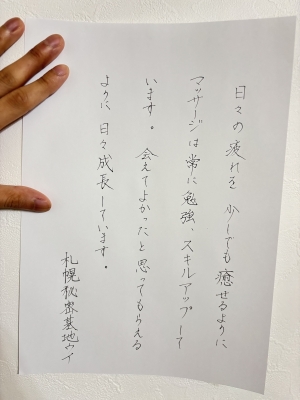 日々の疲れを少しでも癒せるように
マッサージは常に勉強、スキルアップして
います。会えてよかったと思ってもらえる
ように日々成長しています。
札幌秘密基地ウイ